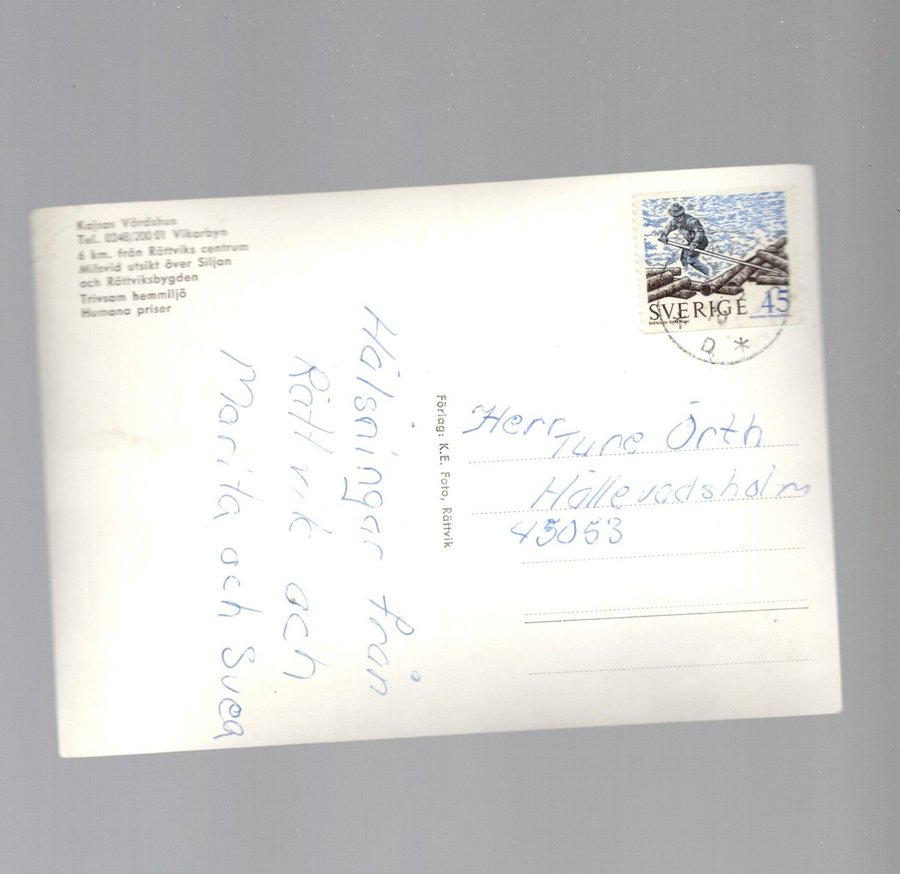 Kajsas Värdshus
Tel. 0248/200 01 Vikarbyn
6 km. från Rättviks centrum
Milsvid utsikt över Siljan
och Rättviksbygden
Trivsam hemmiljö
Humana priser
Hälsningar från
Rättvik och
Marita och Svea
Förlag: K.E. Foto, Rättvik
SVERIGE 45
D *
Herr Ture Örth
Hällevadsholm
45053